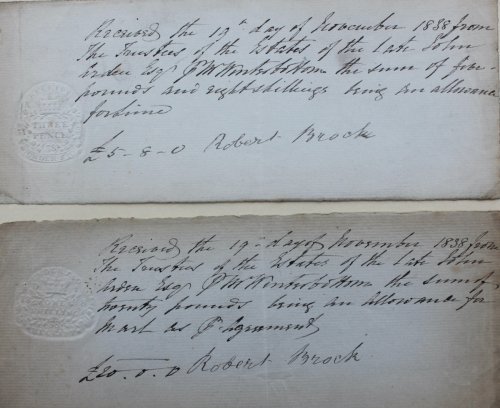 Received the 19th day of November 1838 from
The Trustees of the Estates of the late John
Arden Esqr Pr Mr Winterbottom the sum of five
pounds and eight shillings being an allowance
for time
£5-8-0 Robert Brock
THREE
PENCE
Received the 19th day of November 1838 from
The Trustees of the Estates of the late John
Arden Esqr Pr Mr Winterbottom the sum of
twenty pounds being an allowance for
Marl as Pr Agreement
£20.0.0 Robert Brock